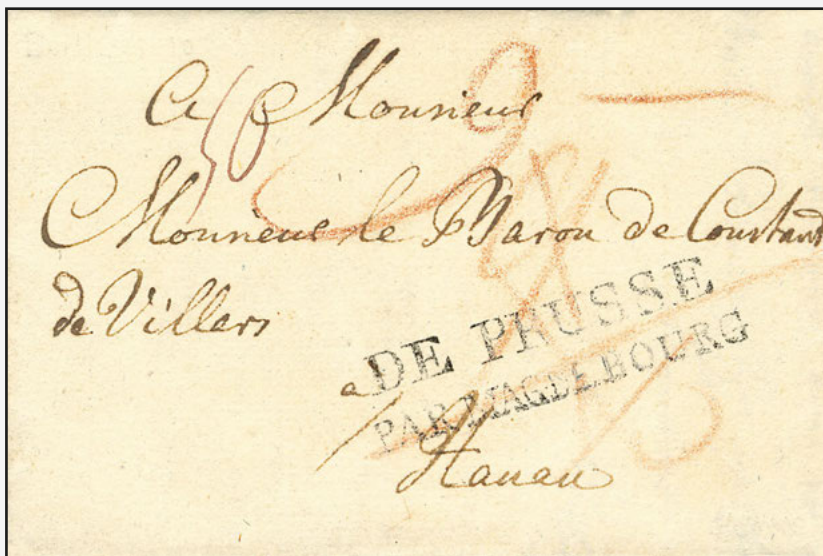 A Monsieur
Monsieur le Baron de Constant
de Villars
DE PRUSSE
PAR MAGDEBOURG
a
Hanau